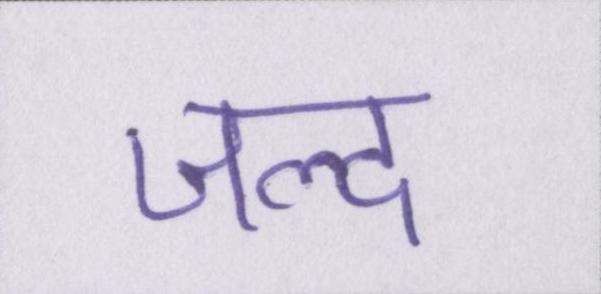 जल्द